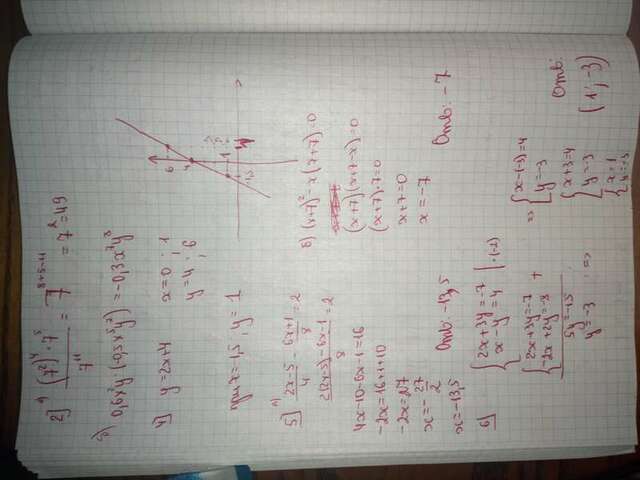 2] а) (7²)⁴ · 7⁵ / 7¹¹ = 7⁸⁺⁵⁻¹¹ = 7² = 49
б) 0,6x²y(-0,5x⁵y⁷) = -0,3x⁷y⁸
4] y = 2x+4
x = 0 ; 1
y = 4 ; 6
при x = -1,5, y = 1
6
4
5] а) 2x-5/4 - 6x+1/8 = 2
2(2x-5)-6x-1/8 = 2
4x-10-6x-1=16
-2x=16+1+10
-2x=27
x=-27/2
x=-13,5
Отв: -13,5
б) (x+7)²-x(x+7)=0
(x+7)(x+7-x)=0
(x+7)·7=0
x+7=0
x=-7
Отв: -7
6]
{2x+3y=-7
x-y=4 |·(-2)
{2x+3y=-7
-2x+2y=-8 +
5y=-15
y=-3 =>
=> {x-(-3)=4
y=-3
{x+3=4
y=-3
{x=1
y=-3
Отв:
(1; -3)